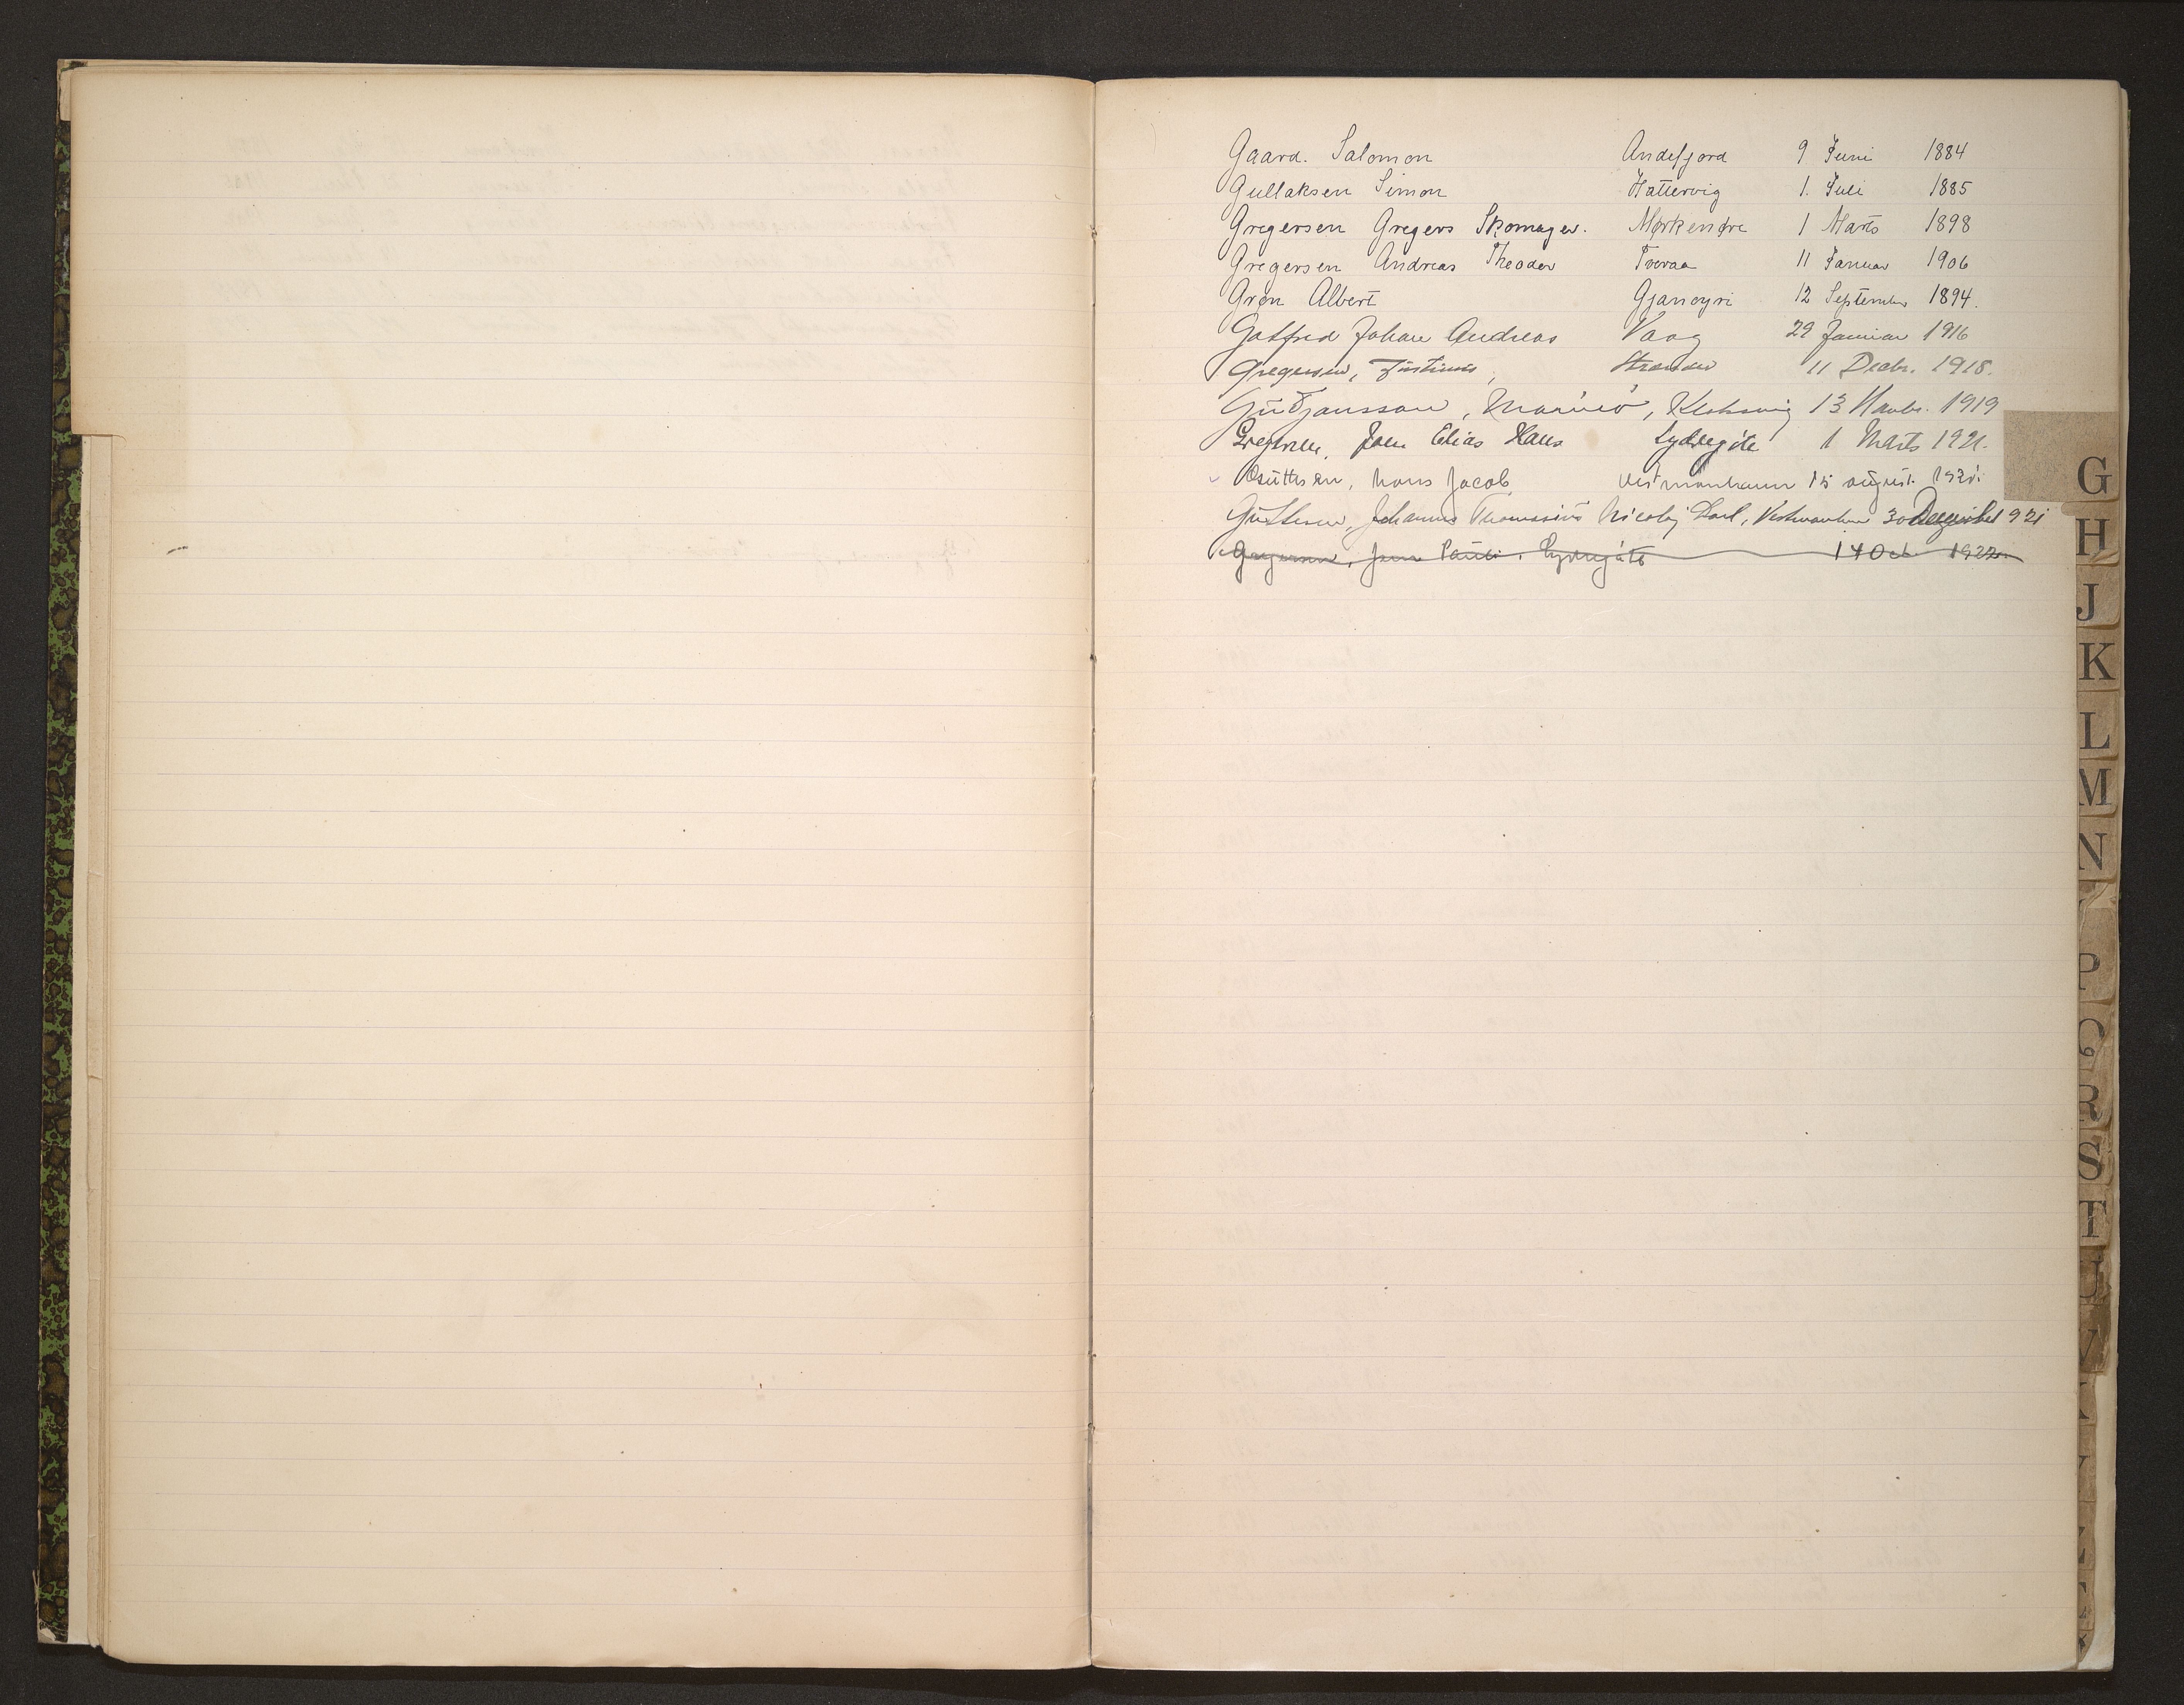 Gaard. Salomon Andefjord 9 Juni 1884
Gullaksen Simon Hattervig 1. Juli 1885
Gregersen Gregers Skomager. Mørkenøre 1 Marts 1898
Gregersen Andreas Theodor Tveraa 11 Januar 1906
Grøn Albert Gjanoyri 12 September 1894.
Gotfred Johan Andreas Vaag 29 Januar 1916
Gregersen, Justinus, 11 Decbr. 1918.
Guðjonsson, Marino, Klaksvig 13 Novbr. 1919
Gregersen, Joen Elias Hans Sydregøte 1 Marts 1921.
Guttesen, Hans Jacob Vestmanhavn 15 august. 1921.
Guttesen, Johannes Thomassius Nicolaj Karl, Vestmanhavn 30 December 1921
Gregersen, Jens Pauli. Sydregøte 14 Oct 1922.
G
H
J
K
L
M
N
P
Q
R
S
T
U
V